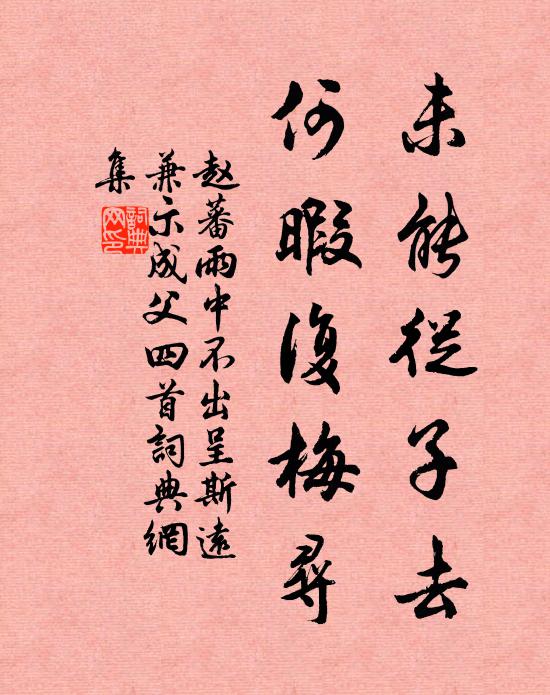 未能從子去
何暇復梅尋
赵蕃雨中不出呈斯遠
兼示成父四首詞典網
集
詞典網印